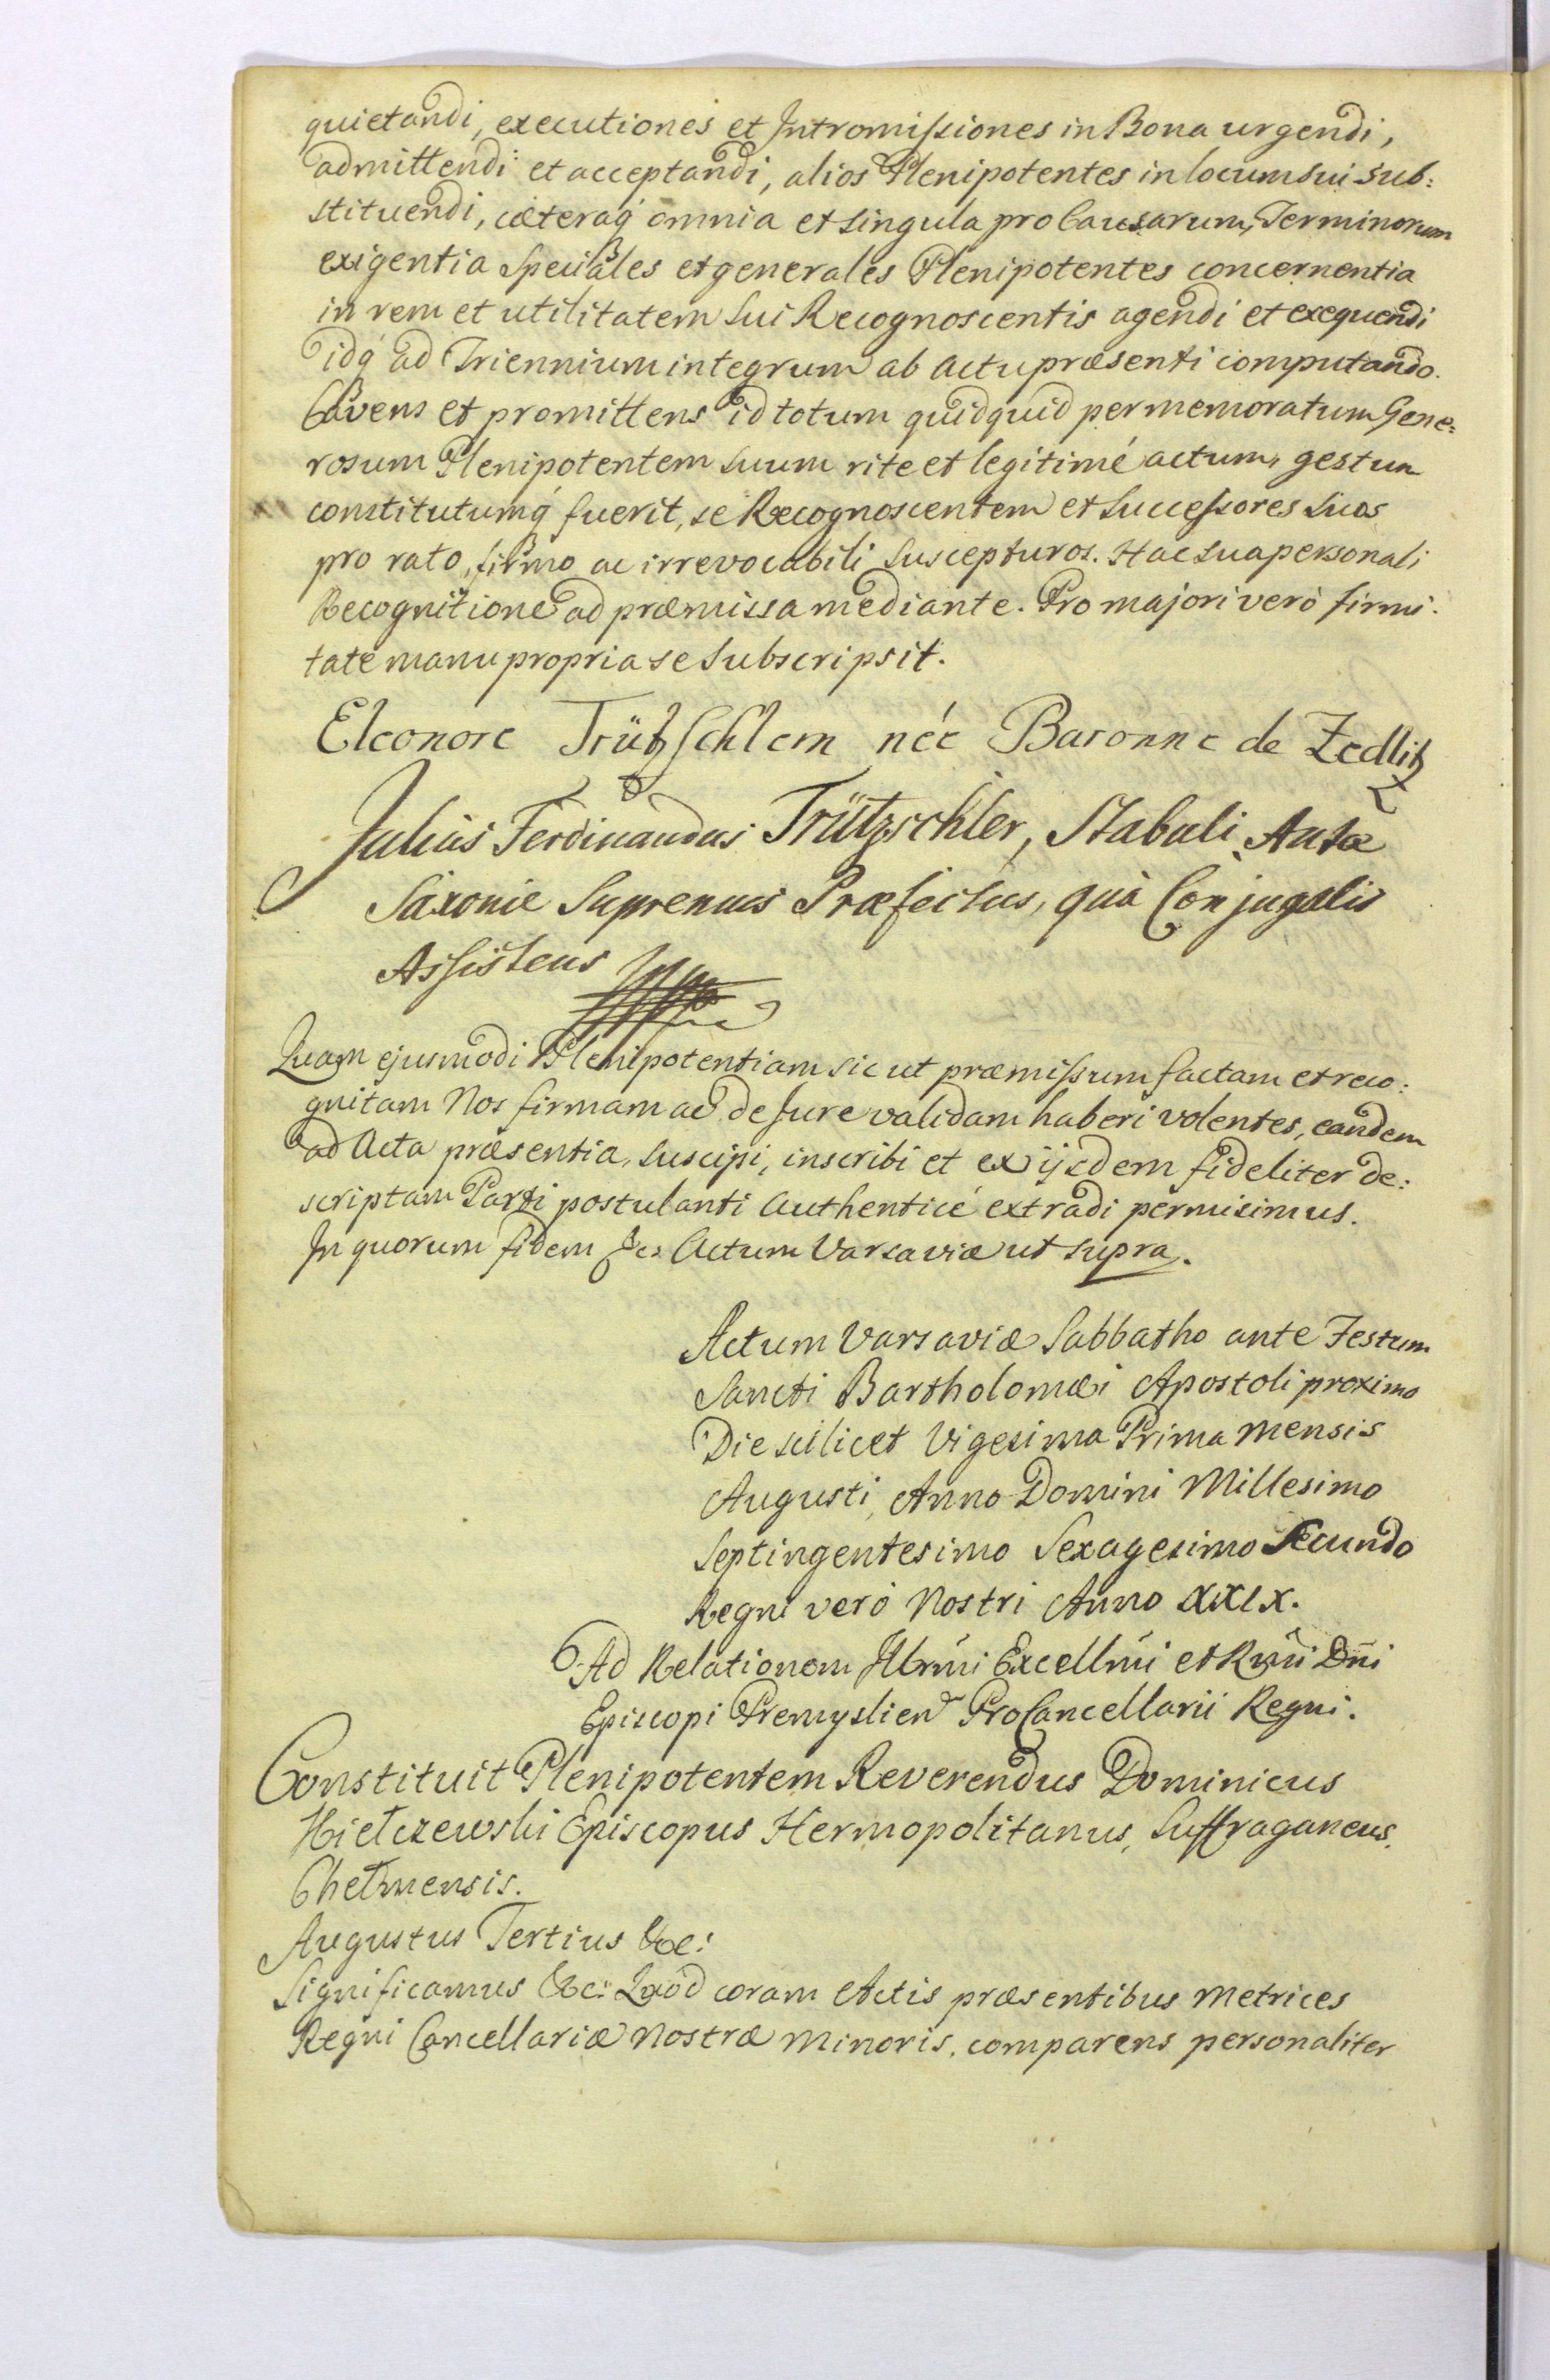 quietandi, executiones et Intromissiones in Bona urgendi,
admittendi et acceptandi, alios Plenipotentes in locum sui sub:
stituendi, cæteraq́ omnia et singula pro Causarum, Terminorum
exigentia speciales et generales Plenipotentes concernentia
in rem et utilitatem sui Recognoscentis agendi et exequendi
idq́ ad Triennium integrum ab actu præsenti computando.
Cavens et promittens id totum quidquid per memoratum Gene:
rosum Plenipotentem suum rite et legitimé actum, gestum
constitutumq́ fuerit, se Recognoscentem et Successores suos
pro rato, firmo ac irrevocabili suscepturos. Hac sua personali
Recognitione ad præmissa mediante. Pro majori veró firmi:
tate manu propria se subscripsit.
Eleonore Trützschlern née Baronne de Zedlitz
Julius Ferdinandus Trützschler, Stabuli Aulæ
Saxonie Supremus Præfectus, quà Conjugalis
Assistens
Quam ejusmodi Plenipotentiam sic ut præmissum factam et reco:
gnitam Nos firmam ac de Jure validam haberi volentes, eandem
ad Acta præsentia, suscipi, inscribi et ex ijsdem fideliter de:
scriptam Parti postulanti Authenticé extradi permisimus.
In quorum fidem &c. Actum Varsaviæ ut supra.
Actum Varsaviæ Sabbatho ante Festum
Sancti Bartholomæi Apostoli proximo
Die scilicet Vigesima Prima Mensis
Augusti, Anno Domini Millesimo
Septingentesimo Sexagesimo Secundo
Regni veró Nostri Anno XXIX.
Ad Relationem Illrm̃i Excellm̃i et Rm̃i Dñi
Episcopi Premyslien ProCancellarii Regni.
Constituit Plenipotentem Reverendus Dominicus
Kiełczewski Episcopus Hermopolitanus, Suffraganeus
Chełmensis.
Augustus Tertius &c:
Significamus &c: Quod coram Actis præsentibus Metrices
Regni Cancellariæ Nostræ Minoris, comparens personaliter